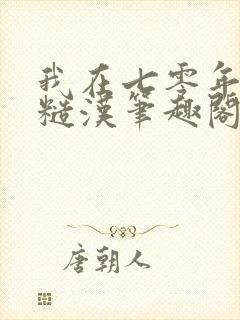 我在七零年
糙漢筆趣閣
唐朝人